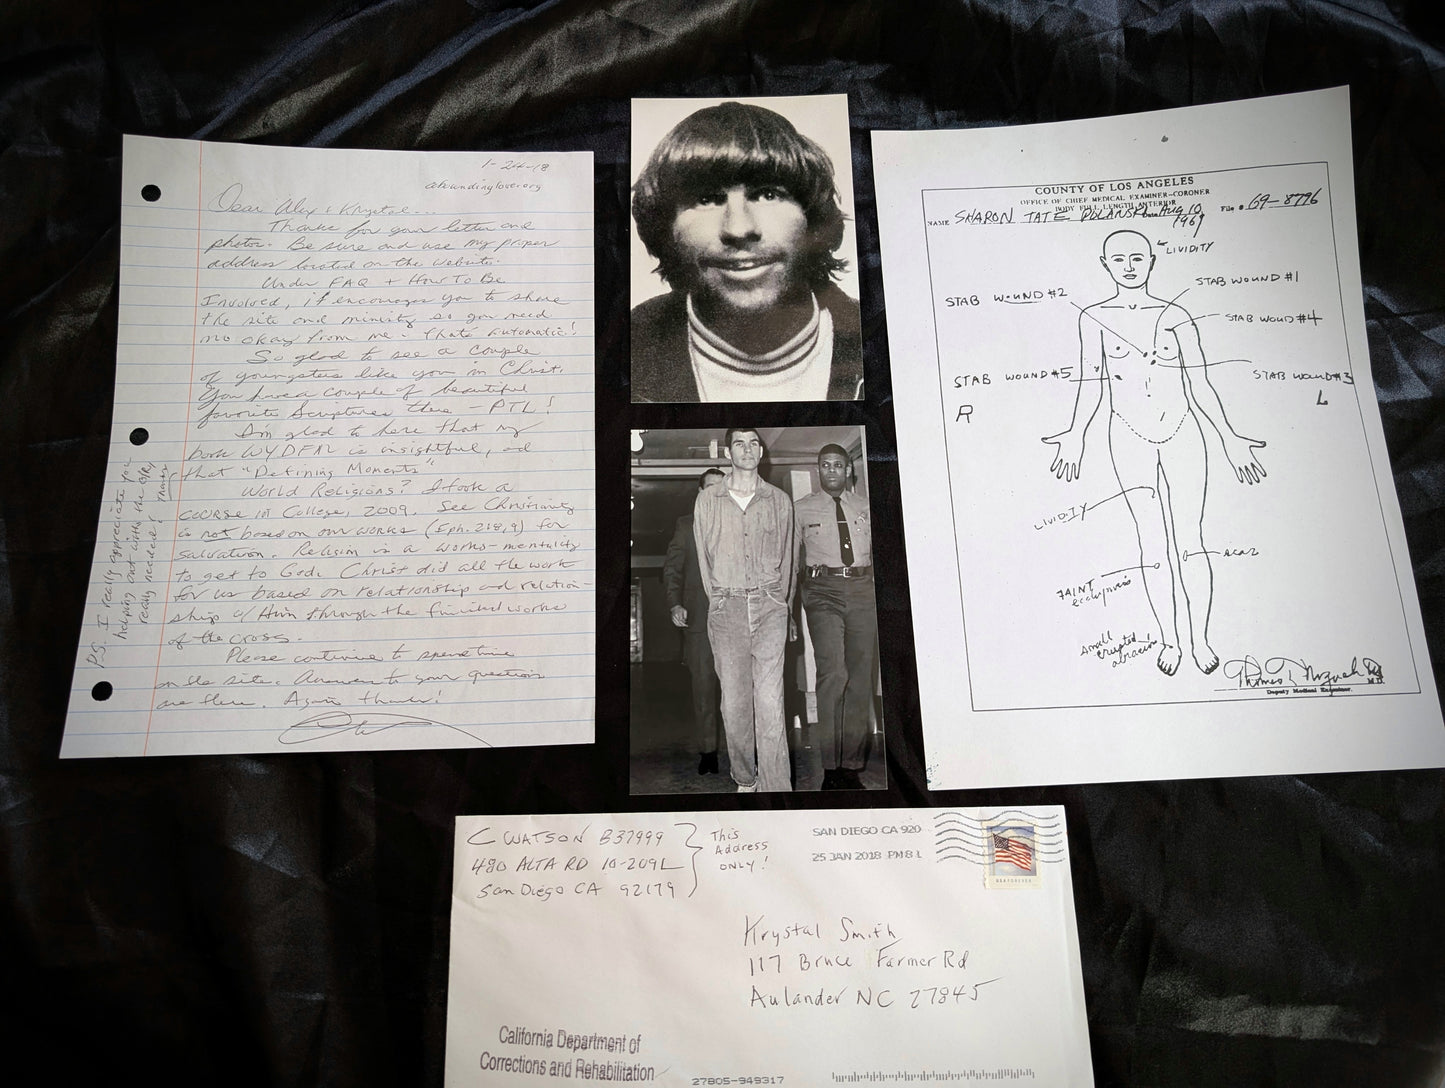 1-24-18
aboundinglove.org
Dear Alex & Krystal...
Thanks for your letter and
photos. Be sure and use my proper
address located on the website.
Under FAQ + How To Be
Involved, it encourages you to share
the site and ministry so you need
no okay from me - that's automatic!
So glad to see a couple
of youngsters like you in Christ.
You have a couple of beautiful
favorite Scriptures there - PTL!
I'm glad to here that my
book WYDFM is insightful, and
that "Defining Moments"
World Religions? I took a
course in College, 2009. See Christianity
is not based on our works (Eph. 2:8,9) for
salvation. Religion is a works-mentality
to get to God. Christ did all the work
for us based on relationship and relation-
ship w/ Him through the finished works
of the cross.
Please continue to spend time
on the site. Answers to your questions
are there. Again thanks!
P.S. I really appreciate you
helping out with the
really needed! Thanks
COUNTY OF LOS ANGELES
OFFICE OF CHIEF MEDICAL EXAMINER-CORONER
BODY FULL LENGTH ANTERIOR
NAME SHARON TATE POLANSKI Aug 10 1969 File # 69-8796
LIVIDITY
STAB WOUND #2
STAB WOUND #1
STAB WOUND #4
STAB WOUND #5
STAB WOUND #3
R
L
LIVIDITY
SCAR
FAINT
ecchymosis
small
abrasion
Thomas T. Noguchi M.D.
Deputy Medical Examiner
C WATSON B37999
480 ALTA RD 10-209L
San Diego CA 92179
This
Address
ONLY!
SAN DIEGO CA 920
25 JAN 2018 PM 8 L
USA FOREVER
Krystal Smith
117 Bruce Farmer Rd
Aulander NC 27845
California Department of
Corrections and Rehabilitation
27805-949317